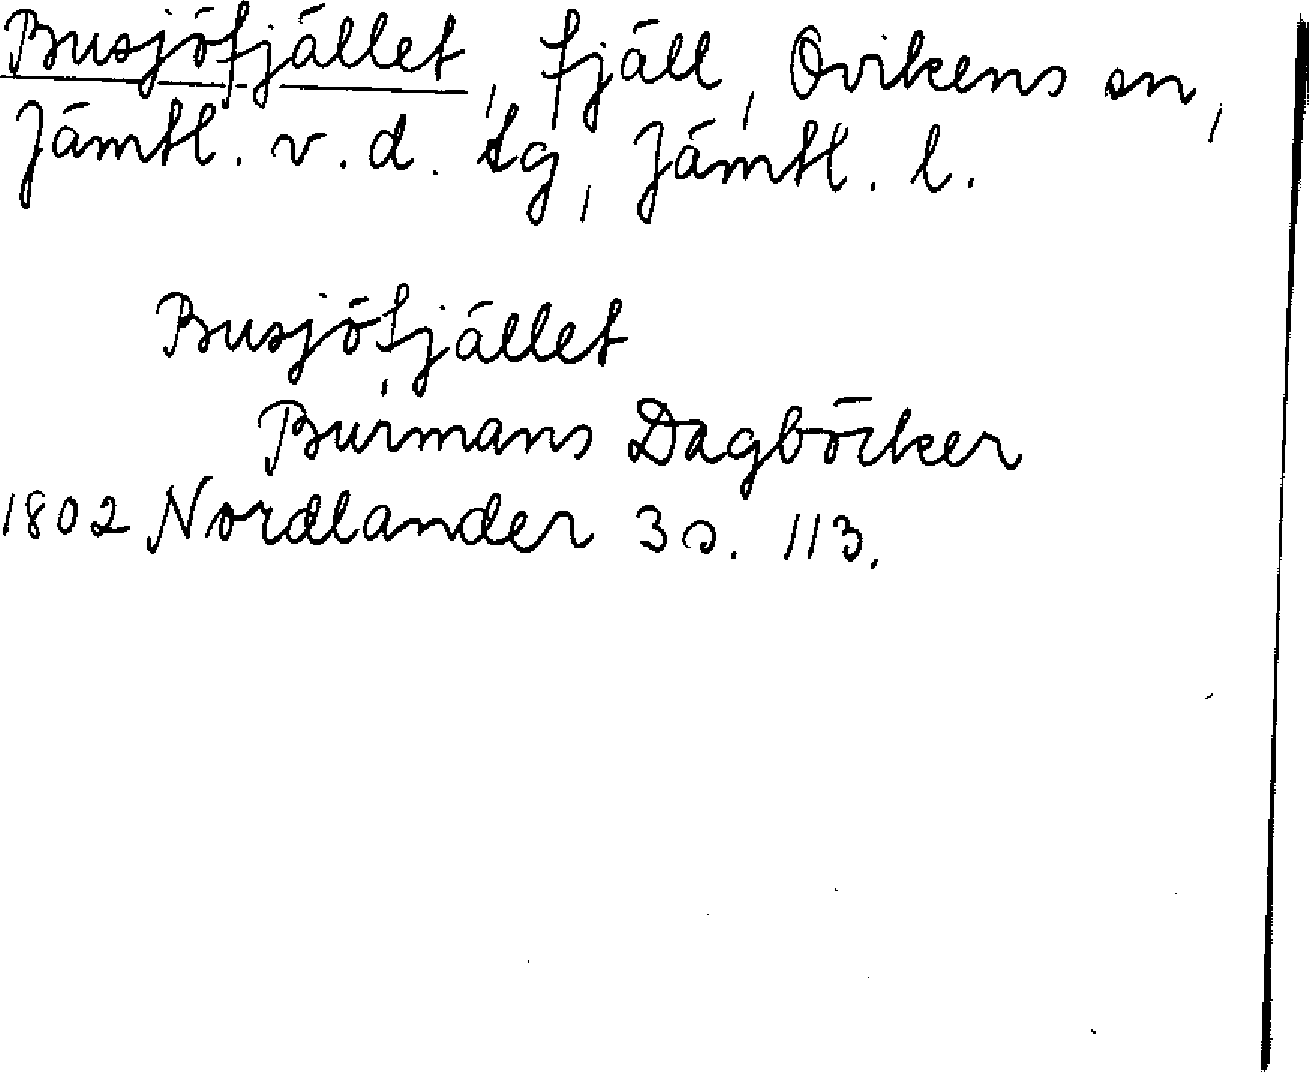 Busjöfjället, fjäll, Ovikens sn,
Jämtl. v. d. tg, Jämtl. l.
Busjöfjället
Burmans Dagböcker
1802 Nordlander 3 s. 113.